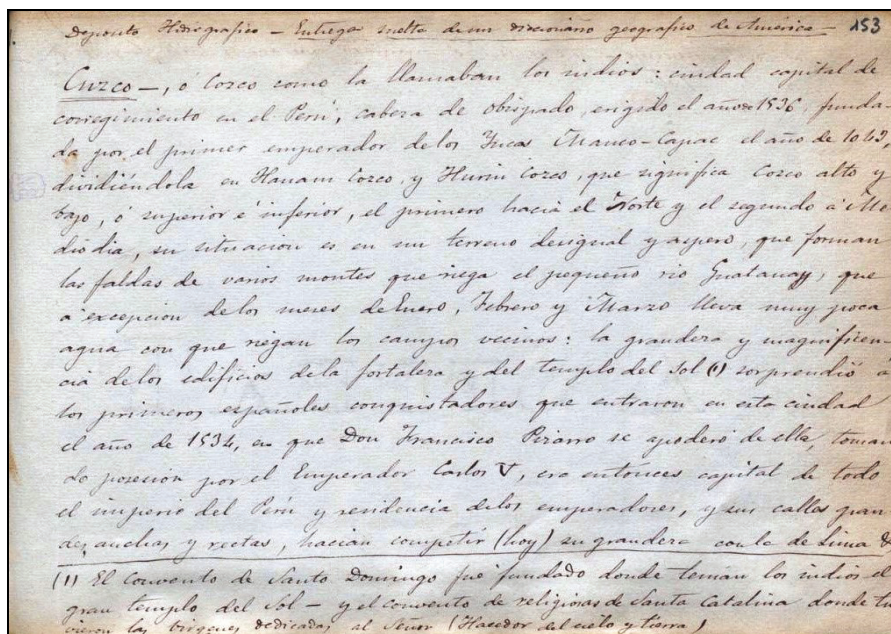 Deposito Hidrografico — Entrega suelta de un diccionario geografico de América — 153
Cuzco —, ó Cozco como la llamaban los indios: ciudad capital de
corregimiento en el Perú, cabeza de obispado, erigido el año de 1536, funda-
da por el primer emperador de los Yncas Manco-Capac el año de 1043,
dividiéndola en Hanam Cozco, y Hurin Cozco, que significa Cozco alto y
bajo, ó superior é inferior, el primero hacia el Norte y el segundo á Me
diodia, su situacion es en un terreno desigual y aspero, que forman
las faldas de varios montes que riega el pequeño rio Guatanay, que
á excepcion de los meses de Enero, Febrero y Marzo lleva muy poca
agua con que riegan los campos vecinos: la grandeza y magnificen-
cia de los edificios de la fortaleza y del templo del Sol (1) sorprendió a
los primeros españoles conquistadores que entraron en esta ciudad
el año de 1534, en que Don Francisco Pizarro se apoderó de ella, toman
do posesion por el Emperador Carlos V, era entonces capital de todo
el imperio del Perú y residencia de los emperadores, y sus calles gran
des anchas y rectas, hacian competir (hoy) su grandeza con la de Lima
(1) El Convento de Santo Domingo fué fundado donde tenian los indios el
gran templo del Sol — y el convento de religiosas de Santa Catalina donde tu
vieron las virgenes dedicadas al Señor (Hacedor del cielo y tierra)